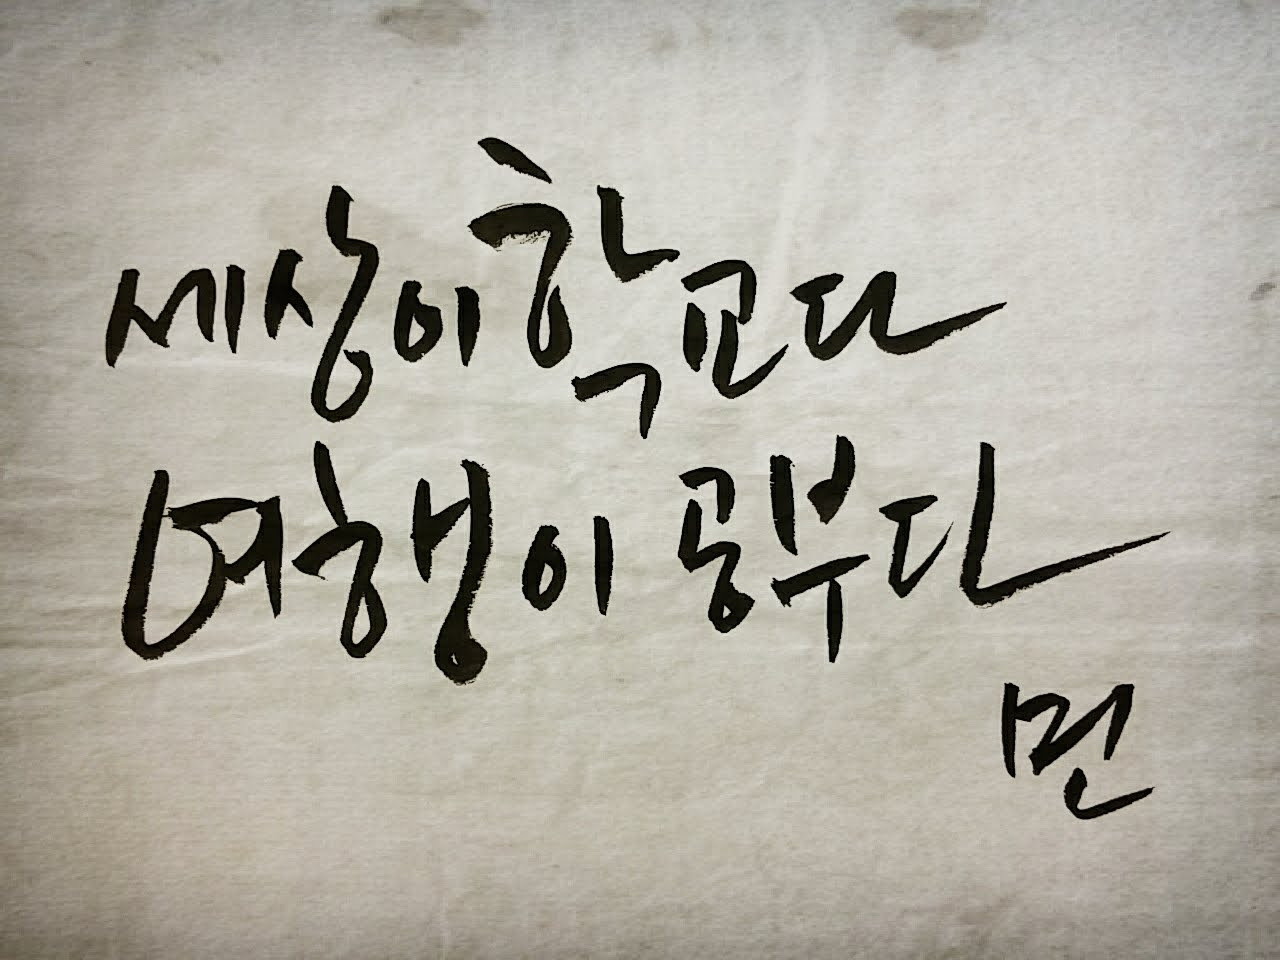 세상이 학교다
여행이 공부다
면